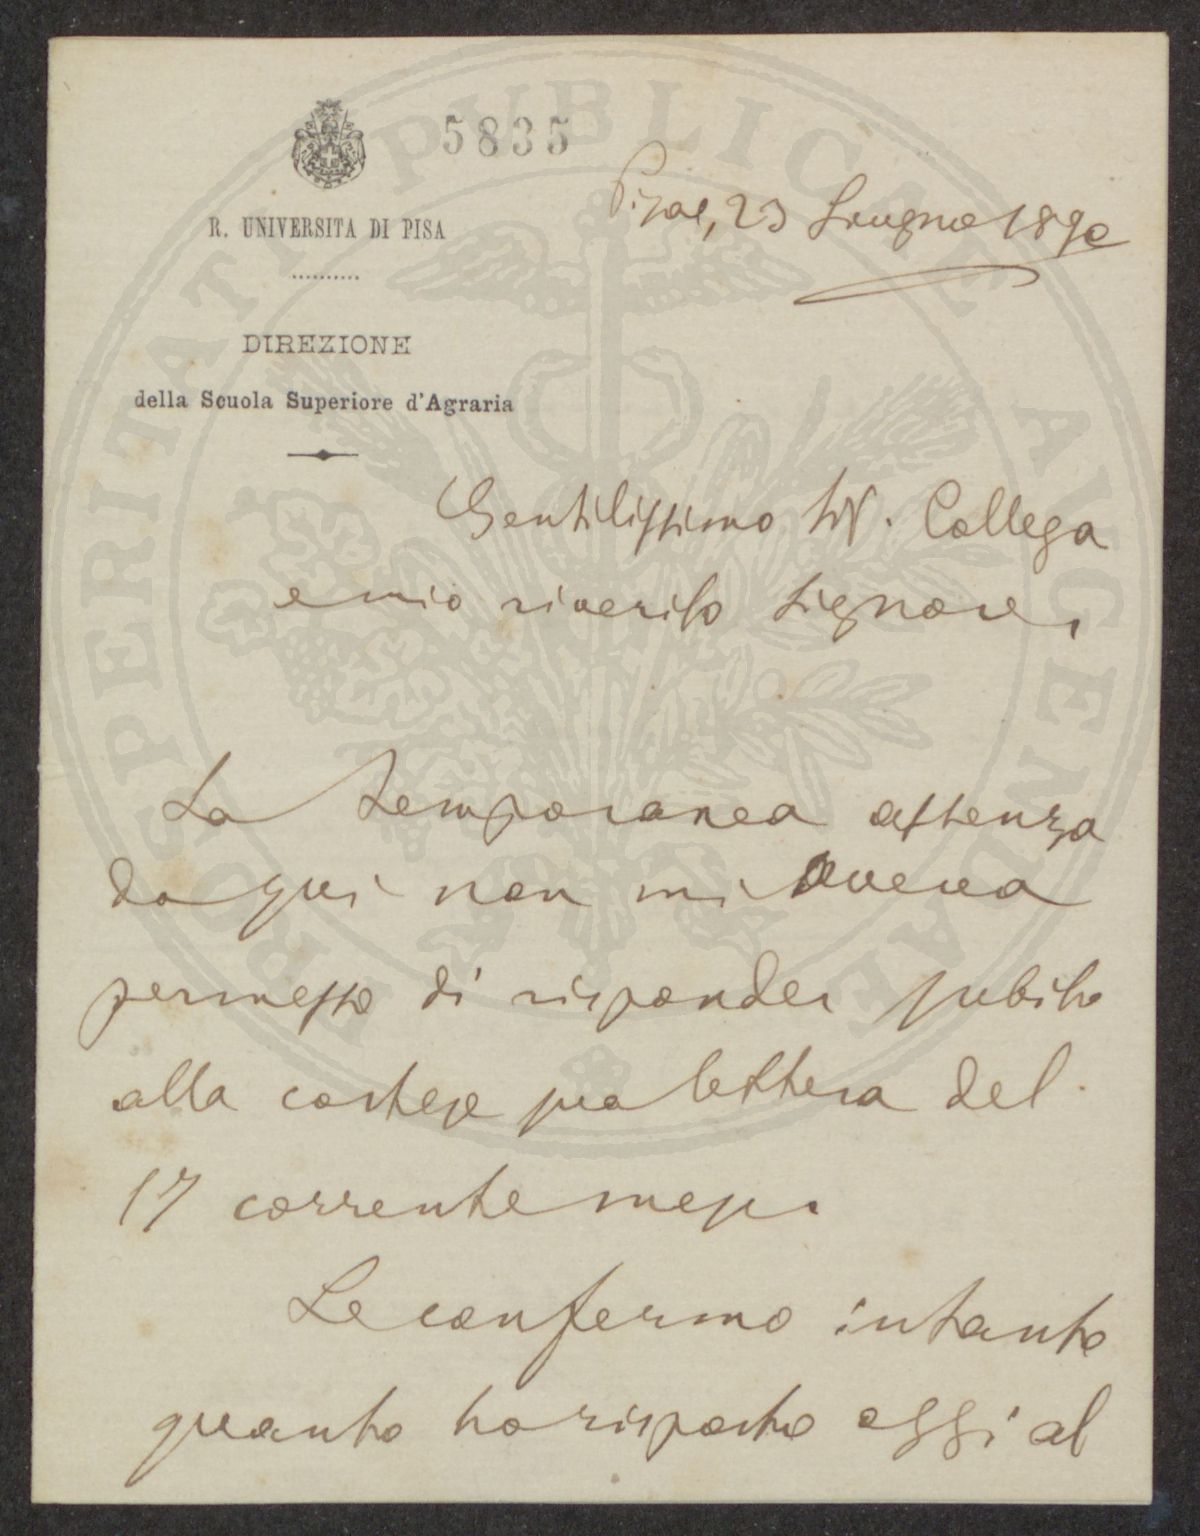 5835
Pisa, 23 Giugno 1890
R. UNIVERSITA DI PISA
DIREZIONE
della Scuola Superiore d'Agraria
Gentilissimo Collega
e mio riverito Signore,
La temporanea assenza
da qui non mi aveva
permesso di risponder subito
alla cortese sua lettera del
17 corrente mese.
Le confermo intanto
quanto ho risposto oggi al
PROSPERITATI PUBLICAE AUGENDAE